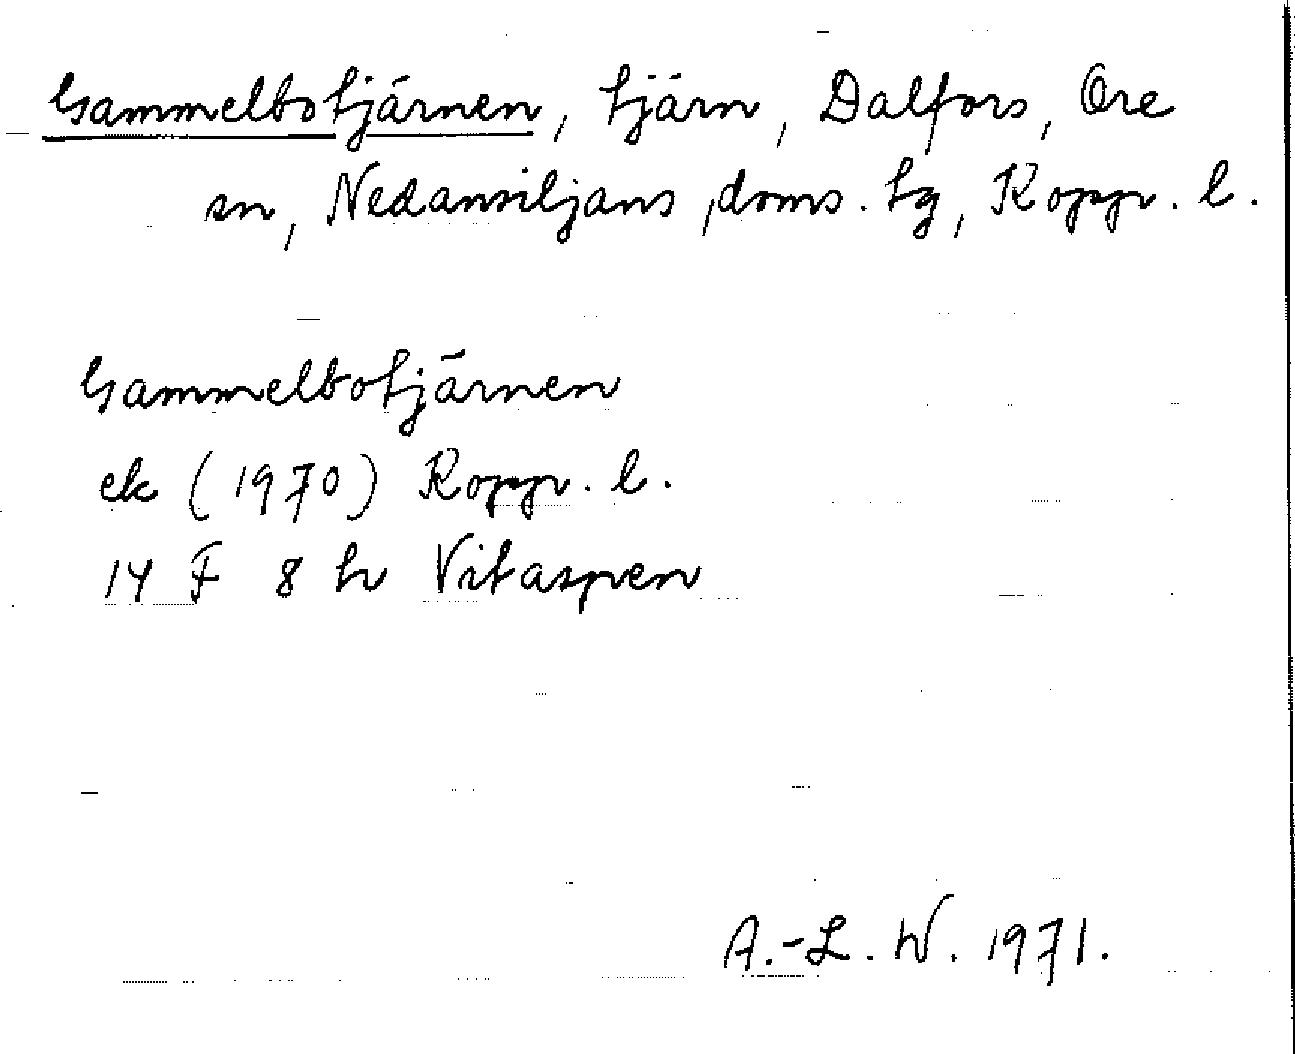 Gammelbotjärnen, tjärn, Dalfors, Ore
sn, Nedansiljans doms. tg, Koppr. l.
Gammelbotjärnen
ek (1970) Koppr. l.
14 F 8 h Vitaspen
A.-L. W. 1971.